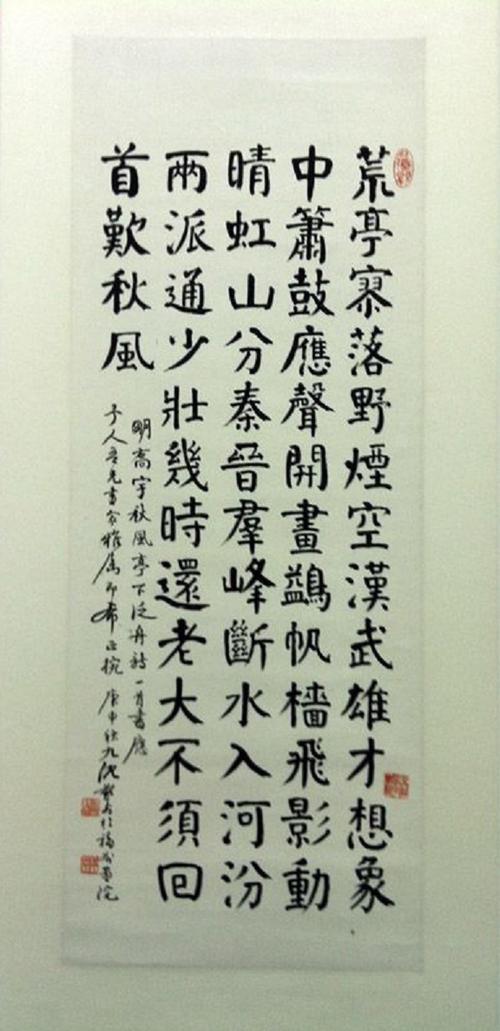 荒亭寥落野煙空漢武雄才想象
中簫鼓應聲開畫鷁帆檣飛影動
晴虹山分秦晉羣峰斷水入河汾
兩派通少壯幾時還老大不須回
首歎秋風
明高宇秋風亭下泛舟詩一首書應
子人吾兄書家雅屬即希正捥 庚申秋九沈